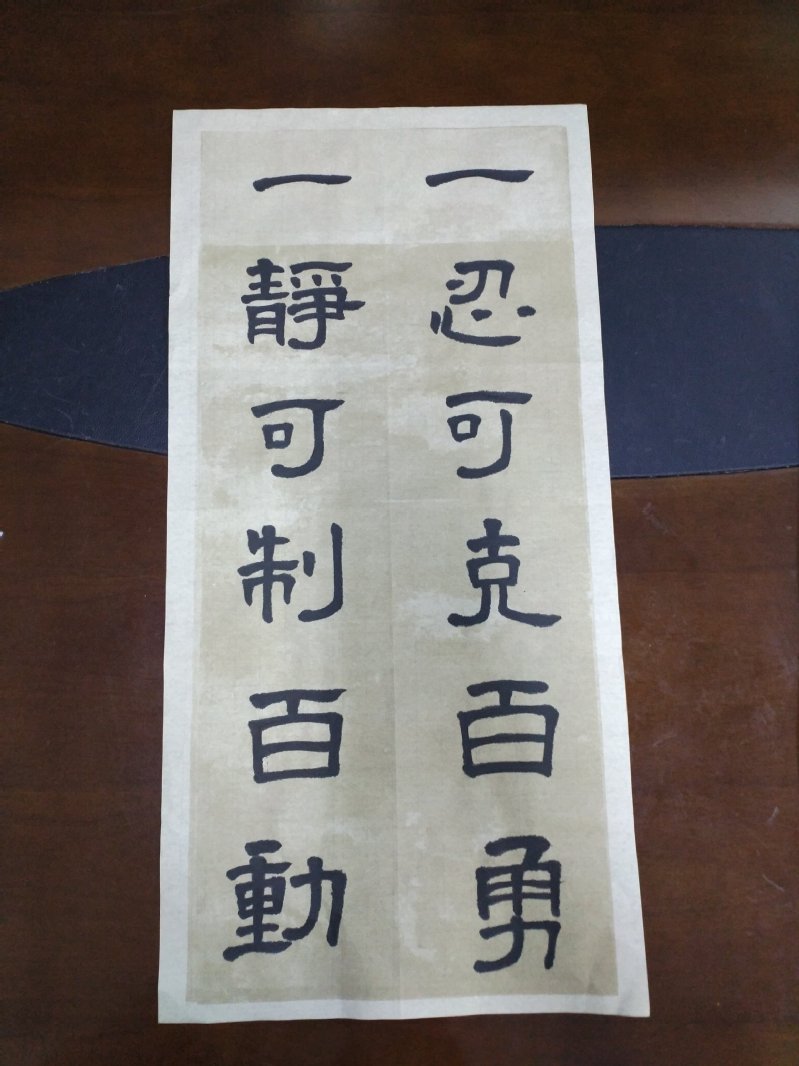 一忍可克百勇
一靜可制百動